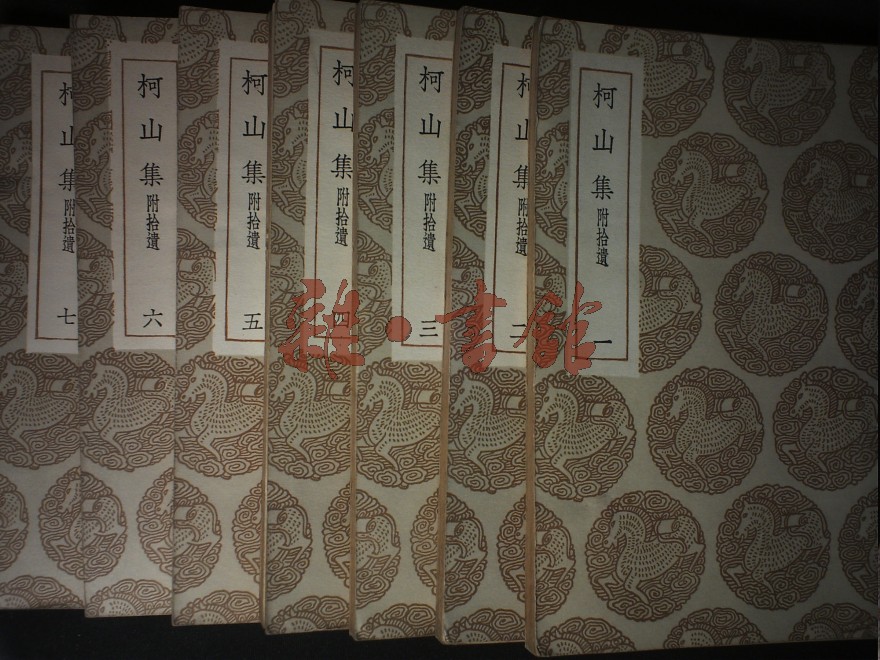 柯山集 附拾遺 一
柯山集 附拾遺 二
柯山集 附拾遺 三
柯山集 附拾遺 四
柯山集 附拾遺 五
柯山集 附拾遺 六
柯山集 附拾遺 七
雜·書館